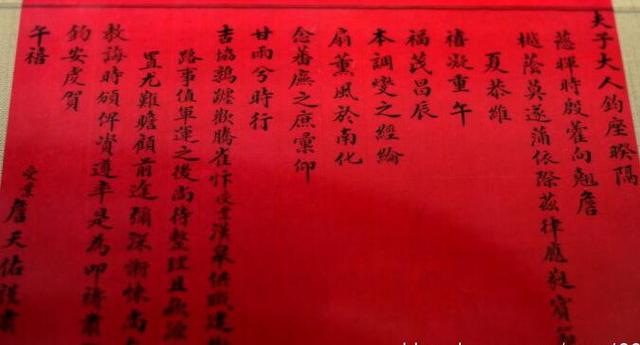 夫子大人鈞座暌隔
慈暉時殷藿向翹詹
樾蔭莫遂蒲依際茲律應蕤賓節
夏恭維
禧凝重午
福茂昌辰
本調燮之經綸
扇薰風於南化
念蕃廡之庶彙仰
甘雨兮時行
吉協鵲躔歡騰雀忭受業漢皋供職建
路事值軍運之後尚待整理且款源
置尤難瞻顧前途彌深慚悚尚
教誨時頒俾資遵率是為叩禱肅
鈞安虔賀
午禧
受業詹天佑謹肅